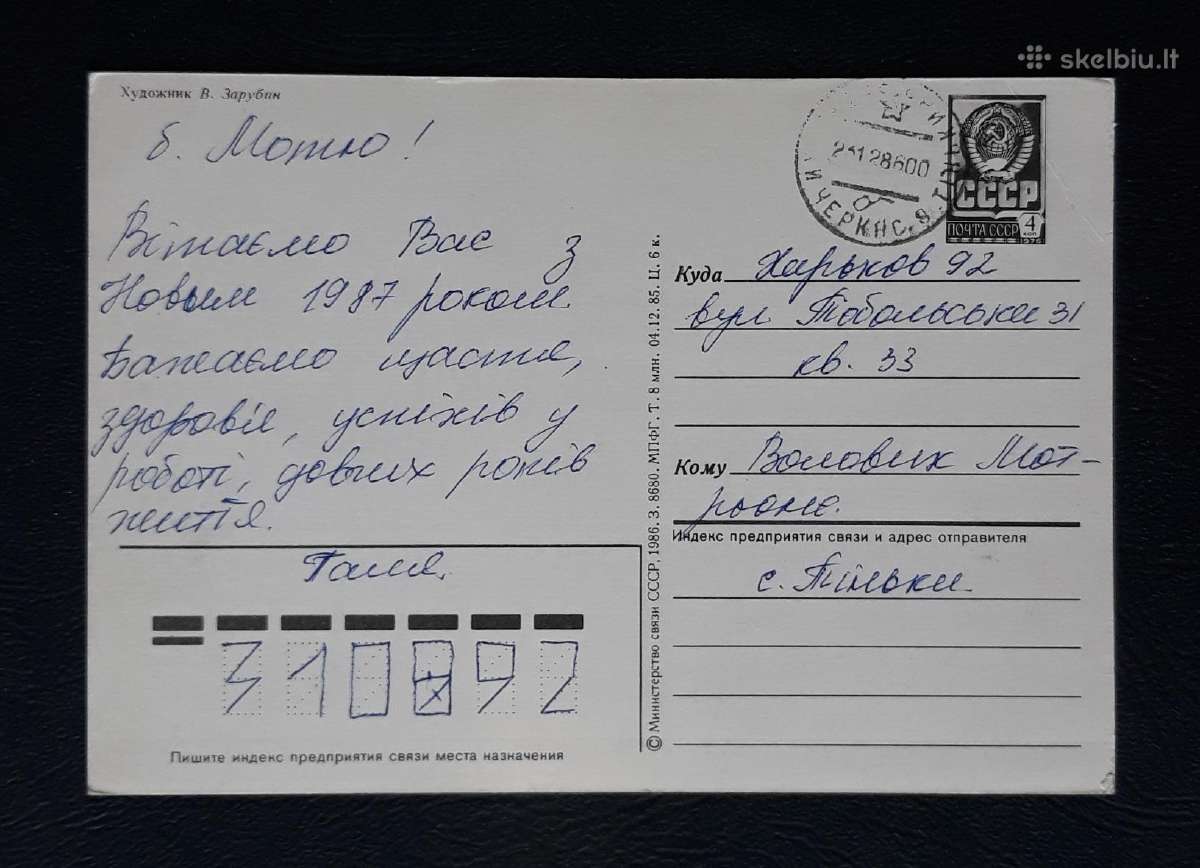 skelbiu.lt
Художник В. Зарубин
б. Мотю!
Вітаємо Вас з
Новым 1987 роком.
Бажаємо щастя,
здоров'я, успіхів у
роботі, довгих років
життя.
Галя.
310092
Пишите индекс предприятия связи места назначения
© Министерство связи СССР, 1986. З. 8680. МПФГ. Т. 8 млн. 04.12.85. Ц. 6 к.
ЧЕРКАС.
СССР
ПОЧТА СССР 4 КОП
1976
Куда Харьков 92
вул Тобольська 31
кв. 33
Кому Воловик Мот-
рьоне.
Индекс предприятия связи и адрес отправителя